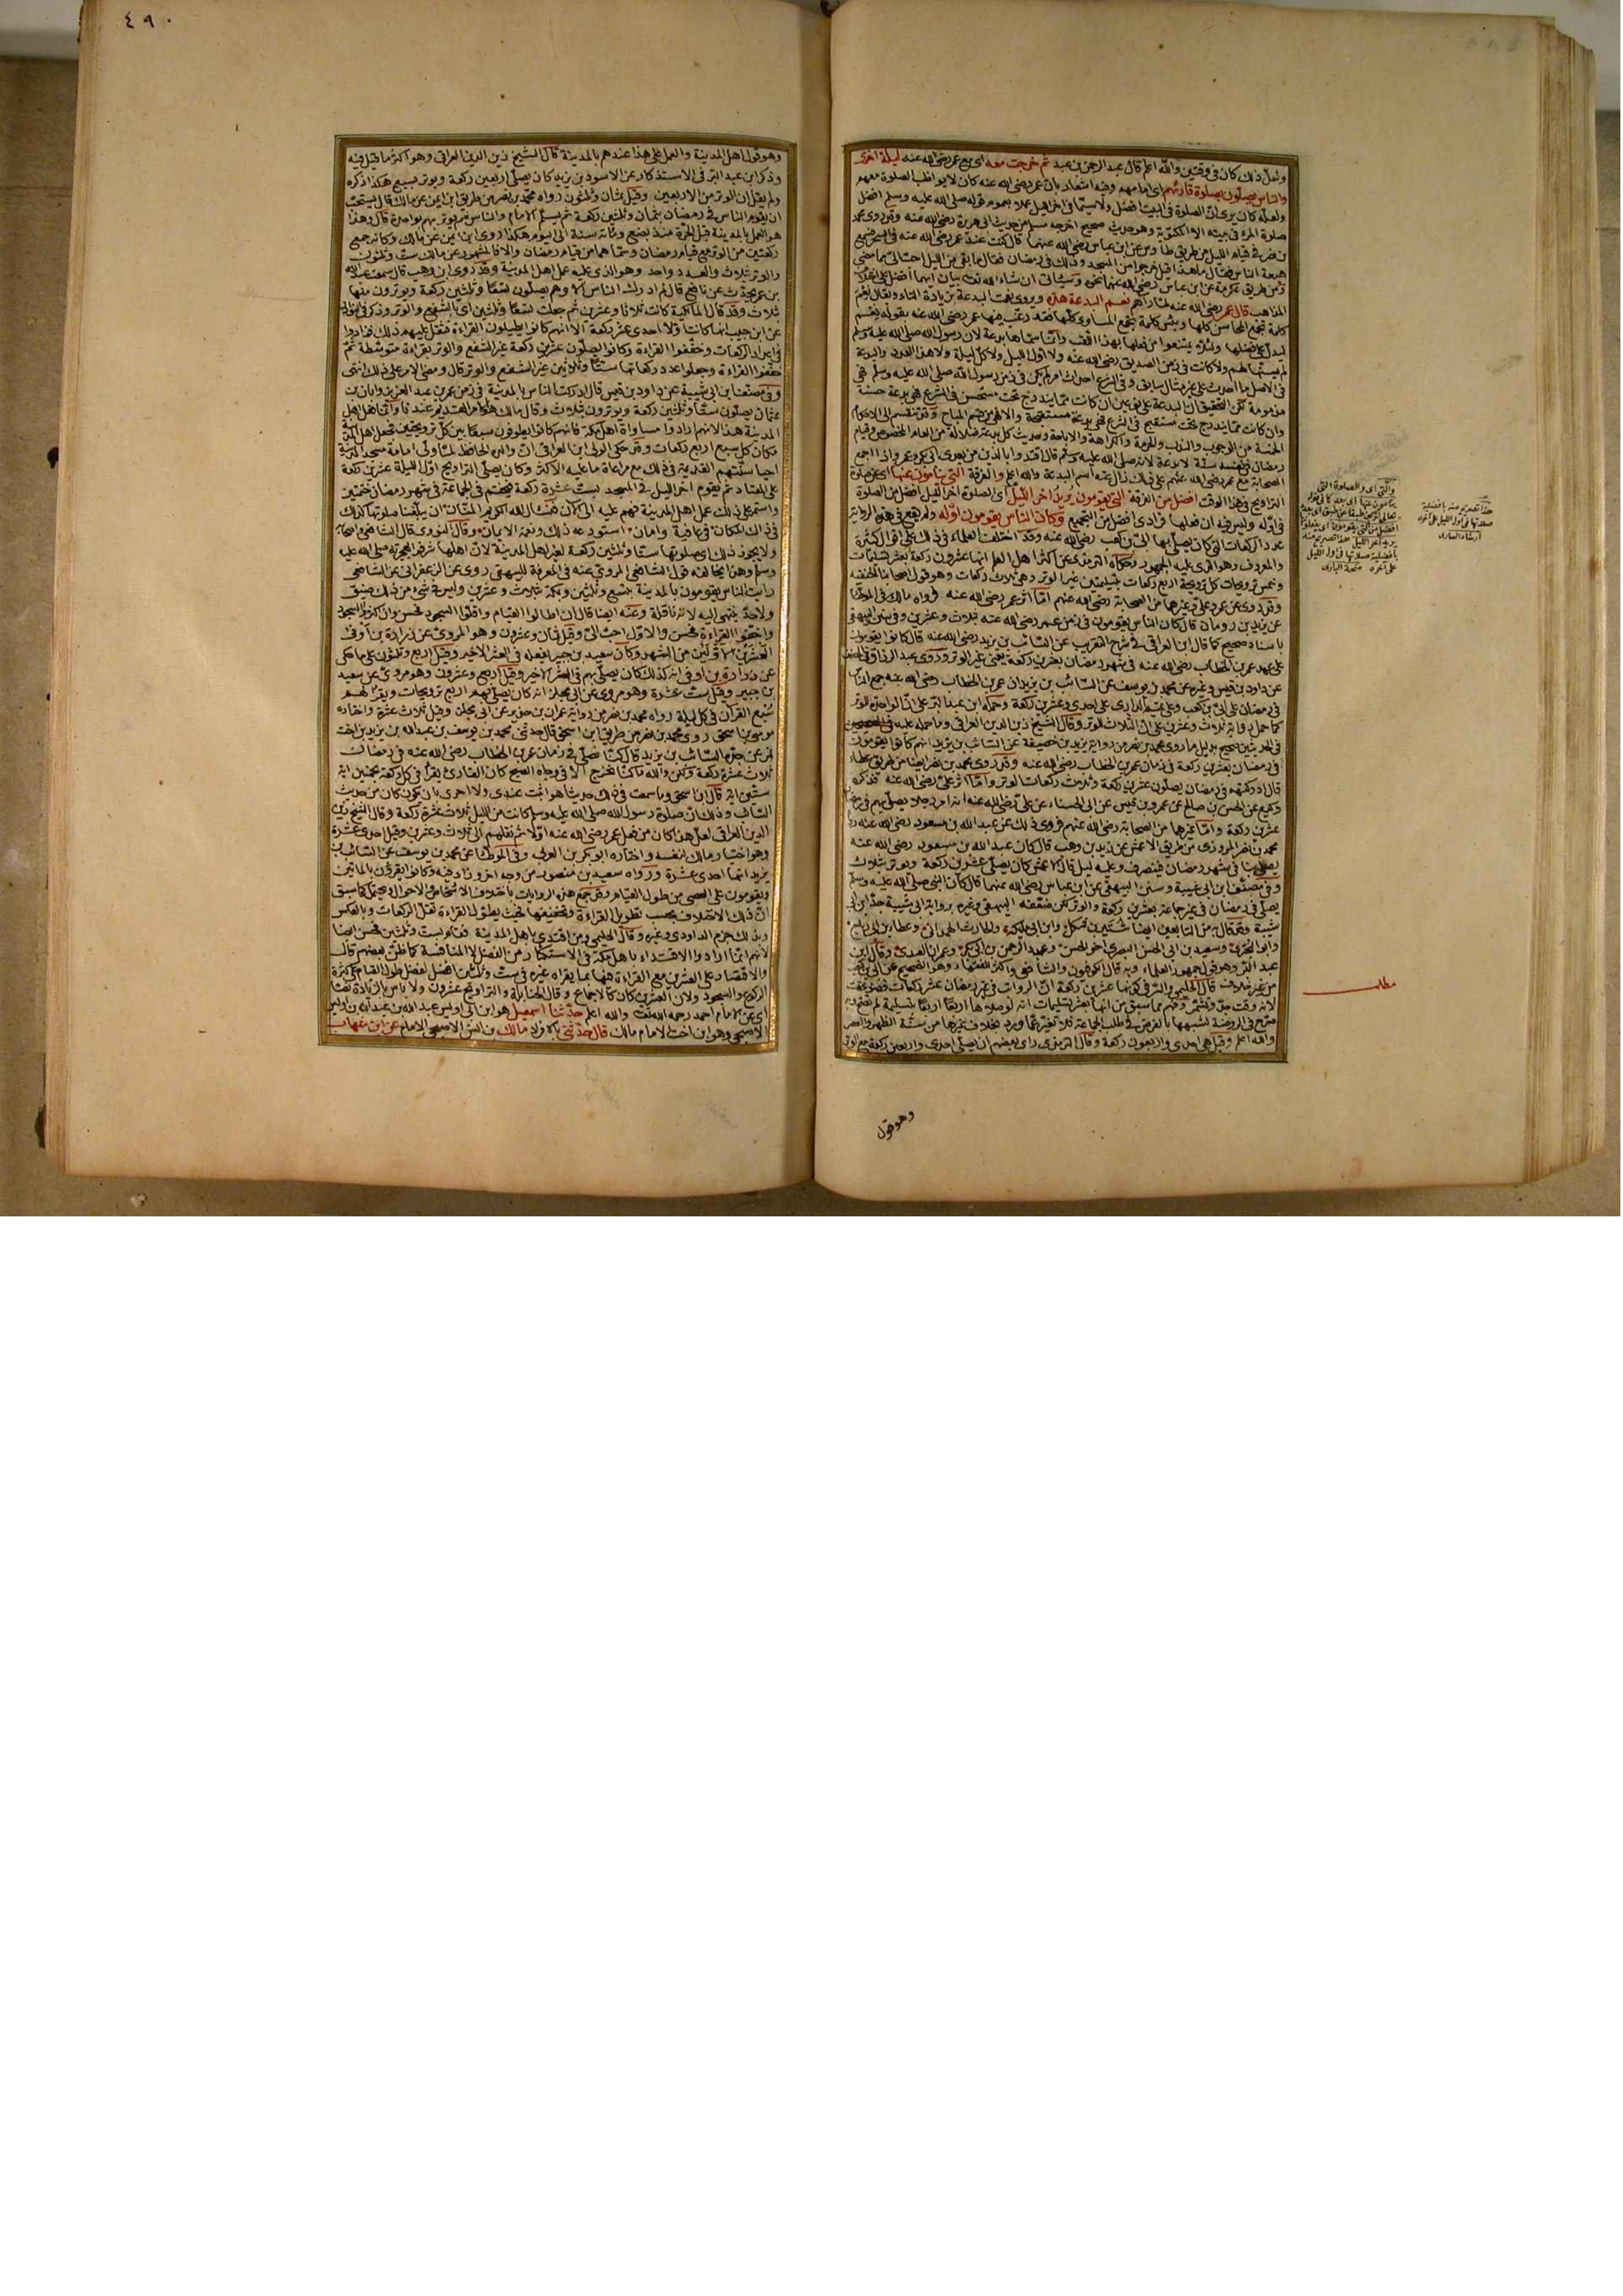 ولعل ذلك كان في وقتين والله اعلم قال عبد الرحمن بن عبد ثم خرجت معه اى مع عمر رضى الله عنه ليلة اخرى
والناس يصلون بصلوة قارئهم اى امامهم وفيه اشعار بان عمر رضى الله عنه كان لا يواظب الصلوة معهم
ولعله كان يرى ان الصلوة في البيت افضل ولا سيما في اخر الليل عملا بعموم قوله صلى الله عليه وسلم افضل
صلوة المرء في بيته الا المكتوبة وهو حديث صحيح اخرجه مسلم من حديث ابى هريرة رضى الله عنه وقد روى محمد
بن نصر في قيام الليل من طريق طاوس عن ابن عباس رضى الله عنهما قال كنت عند عمر رضى الله عنه في السحر فسمع
هيعة الناس فقال ما هذا قيل خرجوا من المسجد وذلك في رمضان فقال ما بقى من الليل احب الى مما مضى
ومن طريق عكرمة عن ابن عباس رضى الله عنهما نحوه وسيأتى ان شاء الله تعالى بيان ايهما افضل
قال عمر رضى الله عنه لما رآهم نعم البدعة هذه ويروى نعمت البدعة بزيادة التاء ويقال نعم
كلمة تجمع المحاسن كلها وبئس كلمة تجمع المساوى كلها فقد رغب فيها عمر رضى الله عنه بقوله نعم
ليدل على فضلها ولئلا يمتنعوا من فعلها بهذا اللقب وانما سماها بدعة لان رسول الله صلى الله عليه وسلم
لم يسنها لهم ولا كانت في زمن الصديق رضى الله عنه ولا اول الليل ولا كل ليلة ولا هذا العدد والبدعة
في الاصل ما احدث على غير مثال سابق وفي الشرع احداث امر لم يكن في زمن رسول الله صلى الله عليه وسلم فهى
مذمومة لكن التحقيق ان البدعة على نوعين ان كانت مما يندرج تحت مستحسن في الشرع فهى بدعة حسنة
وان كانت مما يندرج تحت مستقبح في الشرع فهى بدعة مستقبحة والا فهى من قسم المباح وقد تنقسم الى الاحكام
الخمسة من الوجوب والندب والحرمة والكراهة والاباحة وحديث كل بدعة ضلالة من العام المخصوص وقيام
رمضان في نفسه سنة لا بدعة لانه صلى الله عليه وسلم قال اقتدوا باللذين من بعدى ابى بكر وعمر واذا اجمع
الصحابة مع عمر رضى الله عنهم على ذلك زال عنه اسم البدعة والله اعلم والفرقة التى ينامون عنها اى عن صلوة
التراويح في هذا الوقت افضل من الفرقة التى يقومون يريد آخر الليل اى الصلوة اخر الليل افضل من الصلوة
في اوله وليس فيه ان فعلها فرادى افضل من التجميع وكان الناس يقومون اوله ولم يقع في هذه الرواية
عدد الركعات التى كان يصلى بها ابى بن كعب رضى الله عنه وقد اختلف العلماء في ذلك على اقوال كثيرة
والمعروف وهو الذى عليه الجمهور وحكاه الترمذى عن اكثر اهل العلم انها عشرون ركعة بعشر تسليمات
وخمس ترويحات كل ترويحة اربع ركعات بتسليمتين غير الوتر وهى ثلاث ركعات وهو قول اصحابنا الحنفية
وقد روى عن عمر وعلى وغيرهما من الصحابة رضى الله عنهم اما اثر عمر رضى الله عنه فرواه مالك في الموطأ
عن يزيد بن رومان قال كان الناس يقومون في زمن عمر رضى الله عنه بثلاث وعشرين وفي سنن البيهقى
باسناد صحيح كما قال ابن العراقى في شرح التقريب عن السائب بن يزيد رضى الله عنه قال كانوا يقومون
على عهد عمر بن الخطاب رضى الله عنه في شهر رمضان بعشرين ركعة يعنى غير الوتر وروى عبد الرزاق في المصنف
عن داود بن قيس وغيره عن محمد بن يوسف عن السائب بن يزيد ان عمر بن الخطاب رضى الله عنه جمع الناس
في رمضان على ابى بن كعب وعلى تميم الدارى على احدى وعشرين ركعة وحمله ابن عبد البر على ان الواحدة للوتر
كما حمل رواية ثلاث وعشرين على ان الثلاث للوتر وقال الشيخ زين الدين العراقى وما حمله عليه
في الحديثين صحيح بدليل ما روى محمد بن نصر من رواية يزيد بن خصيفة عن السائب بن يزيد انهم كانوا يقومون
في رمضان بعشرين ركعة في زمان عمر بن الخطاب رضى الله عنه وقد روى محمد بن نصر ايضا من طريق عطاء
قال ادركتهم في رمضان يصلون عشرين ركعة وثلاث ركعات الوتر واما اثر على رضى الله عنه فذكره
وكيع عن الحسن بن صالح عن عمرو بن قيس عن ابى الحسناء عن على رضى الله عنه انه امر رجلا يصلى بهم في رمضان
عشرين ركعة واما غيرهما من الصحابة رضى الله عنهم فروى ذلك عن عبد الله بن مسعود رضى الله عنه رواه
محمد بن نصر المروزى من طريق الاعمش عن زيد بن وهب قال كان عبد الله بن مسعود رضى الله عنه
يصلى بنا في شهر رمضان فينصرف وعليه ليل قال الاعمش كان يصلى عشرين ركعة ويوتر بثلاث
وفي مصنف ابن ابى شيبة وسنن البيهقى عن ابن عباس رضى الله عنهما قال كان النبى صلى الله عليه وسلم
يصلى في رمضان في غير جماعة بعشرين ركعة والوتر لكن ضعفه البيهقى وغيره برواية ابى شيبة جد ابن ابى
شيبة وممن قال به من التابعين ايضا شتير بن شكل وابن ابى مليكة والحارث الهمدانى وعطاء بن ابى رباح
وابو البخترى وسعيد بن ابى الحسن البصرى اخو الحسن وعبد الرحمن بن ابى بكر وعمران العبدى وقال ابن
عبد البر وهو قول جمهور العلماء وبه قال الكوفيون والشافعى واكثر الفقهاء وهو الصحيح عن ابى بن كعب
من غير خلاف قال الحليمى والسر في كونها عشرين ركعة ان الرواتب في غير رمضان عشر ركعات فضوعفت
لانه وقت جد وتشمر وفهم مما سبق من انها بعشر تسليمات انه لو صلاها اربعا اربعا بتسليمة لم تصح وبه
صرح في الروضة لشبهها بالفرض في طلب الجماعة فلا تغير عما ورد بخلاف غيرها من سنة الظهر والعصر
والله اعلم وقيل هى احدى واربعون ركعة وقال الترمذى رأى بعضهم ان يصلى احدى واربعين ركعة مع الوتر
وهو قول
مطلب
والتى اى والصلوة التى
هذا تصريح منه بافضلية
صلاتها في اول الليل على آخره
ارشاد السارى
٤٩٠
وهو قول اهل المدينة والعمل على هذا عندهم بالمدينة قال الشيخ زين الدين العراقى وهو اكثر ما قيل فيه
وذكر ابن عبد البر في الاستذكار عن الاسود بن يزيد كان يصلى اربعين ركعة ويوتر بسبع هكذا ذكره
ولم يقل ان الوتر من الاربعين وقيل ثمان وثلثون رواه محمد بن نصر من طريق ابن ايمن عن مالك قال يستحب
ان يقوم الناس في رمضان بثمان وثلثين ركعة ثم يسلم الامام والناس ثم يوتر بهم بواحدة قال وهذا
هو العمل بالمدينة قبل الحرة منذ بضع ومائة سنة الى اليوم هكذا روى ابن ايمن عن مالك وكأنه جمع
ركعتين من الوتر مع قيام رمضان وسماها من قيام رمضان والا فالمشهور عن مالك ست وثلثون
والوتر ثلاث والعدد واحد وهو الذى عليه عمل اهل المدينة وقد روى ابن وهب قال سمعت عبد الله
بن عمر يحدث عن نافع قال لم ادرك الناس الا وهم يصلون تسعا وثلثين ركعة ويوترون منها
بثلاث وقد قال المالكية كانت ثلاثا وعشرين ثم جعلت تسعا وثلثين اى بالشفع والوتر وذكر في النوادر
عن ابن حبيب انها كانت اولا احدى عشر ركعة الا انهم كانوا يطيلون القراءة فثقل عليهم ذلك فزادوا
في اعداد الركعات وخففوا القراءة وكانوا يصلون عشرين ركعة غير الشفع والوتر بقراءة متوسطة ثم
خففوا القراءة وجعلوا عدد ركعاتها ستا وثلاثين غير الشفع والوتر قال ومضى الامر على ذلك انتهى
وفي مصنف ابن ابى شيبة عن داود بن قيس قال ادركت الناس بالمدينة في زمن عمر بن عبد العزيز وابان بن
عثمان يصلون ستا وثلثين ركعة ويوترون بثلاث وقال مالك هو الامر القديم عندنا وانما فعل اهل
المدينة هذا لانهم ارادوا مساواة اهل مكة فانهم كانوا يطوفون سبعا بين كل ترويحتين فجعل اهل المدينة
مكان كل سبع اربع ركعات وقد حكى الولى ابن العراقى ان والده الحافظ لما ولى امامة مسجد المدينة
احيا سنتهم القديمة في ذلك مع مراعاة ما عليه الاكثر وكان يصلى التراويح اول الليلة عشرين ركعة
على المعتاد ثم يقوم اخر الليل في المسجد بست عشرة ركعة فيختم في الجماعة في شهر رمضان ختمتين
واستمر على ذلك عمل اهل المدينة فهم عليه الى الآن فنسأل الله الكريم المنان ان يبلغنا صلوتها كذلك
في ذاك المكان في عافية وامان استودعه ذلك ونعم الايمان وقال النووى قال الشافعى واصحابه
ولا يجوز ذلك اى صلوتها ستا وثلثين ركعة لغير اهل المدينة لان لاهلها شرف الهجرة صلى الله عليه
وسلم وهذا يخالفه قول الشافعى المروى عنه في المعرفة للبيهقى روى عن الزعفرانى عن الشافعى
رأيت الناس يقومون بالمدينة بتسع وثلثين وبمكة بثلاث وعشرين وليس في شىء من ذلك ضيق
ولا حد ينتهى اليه لانه نافلة وعنه ايضا قال ان اطالوا القيام واقلوا السجود فحسن وان اكثروا السجود
واخفوا القراءة فحسن والاول احب الى وقيل ثمان وعشرون وهو المروى عن زرارة بن اوفى
في العشرين الاولين من الشهر وكان سعيد بن جبير يفعله في العشر الاخير وقيل اربع وثلثون على ما حكى
عن زرارة بن اوفى انه كذلك كان يصلى بهم في العشر الاخير وقيل اربع وعشرون وهو مروى عن سعيد
بن جبير وقيل ست عشرة وهو مروى عن ابى مجلز انه كان يصلى بهم اربع ترويحات ويقرأ لهم
سبع القرآن في كل ليلة رواه محمد بن نصر من رواية عمران بن حدير عن ابى مجلز وقيل ثلاث عشرة واختاره
محمد بن اسحق روى محمد بن نصر من طريق ابن اسحق قال حدثنى محمد بن يوسف بن عبد الله بن يزيد ابن اخت
نمر عن جده السائب بن يزيد قال كنا نصلى في زمان عمر بن الخطاب رضى الله عنه في رمضان
ثلاث عشرة ركعة ولكن والله ما كنا نخرج الا في وجاه الصبح كان القارئ يقرأ في كل ركعة بخمسين اية
ستين اية قال ابن اسحق وما سمعت في ذلك حديثا هو اثبت عندى ولا احرى بان يكون كان من حديث
السائب وذلك ان صلوة رسول الله صلى الله عليه وسلم كانت من الليل ثلاث عشرة ركعة وقال الشيخ زين
الدين العراقى لعل هذا كان من فعل عمر رضى الله عنه اولا ثم نقلهم الى ثلاث وعشرين وقيل احدى عشرة
وهو اختيار مالك لنفسه واختاره ابو بكر بن العربى وفي الموطأ عن محمد بن يوسف عن السائب بن
يزيد انها احدى عشرة ورواه سعيد بن منصور من وجه اخر وزاد فيه وكانوا يقرؤن بالمائتين
ويقومون على العصى من طول القيام وقد جمع هذه الروايات باختلاف الاشخاص والاحوال ويحتمل كما سبق
ان ذلك الاختلاف بحسب تطويل القراءة وتخفيفها فحيث يطول القراءة تقل الركعات وبالعكس
وبذلك جزم الداودى وغيره وقال الحليمى ومن اقتدى باهل المدينة فقام بست وثلثين فحسن ايضا
لانهم انما ارادوا الاقتداء باهل مكة في الاستكثار من الفضل لا المنافسة كما ظن بعضهم قال
والاقتصار على العشرين مع القراءة فيها بما يقرأه غيره في ست وثلثين افضل لفضل طول القيام على كثرة
الركوع والسجود ولان العشرين كان كالاجماع وقال الحنابلة والتراويح عشرون ولا بأس بالزيادة نصا
اى عن الامام احمد رحمه الله تعالى والله اعلم حدثنا اسمعيل هو ابن ابى اويس عبد الله بن عبد الله بن اويس
الاصبحى وهو ابن اخت الامام مالك قال حدثنى بالافراد مالك بن انس الاصبحى الامام عن ابن شهاب